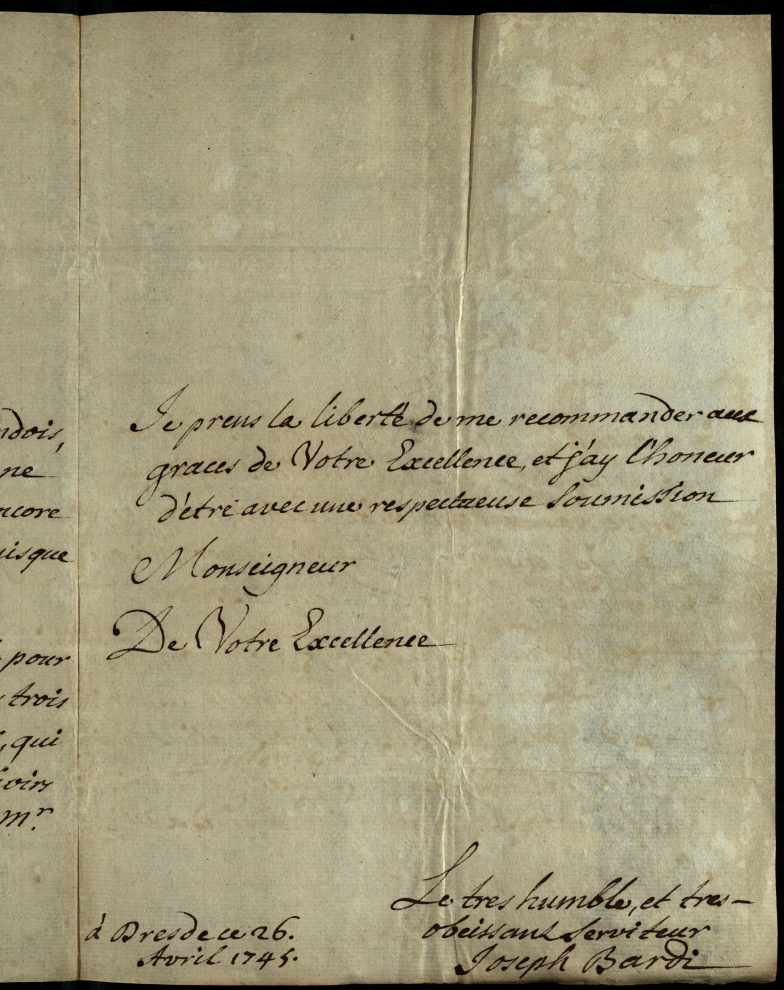 ndois,
ne
ncore
uisque
pour
trois
, qui
voirs
mr.
Je prens la liberté de me recommander aux
graces de Votre Excellence, et j'ay l'honeur
d'étre avec une respectueuse Soumission
Monseigneur
De Votre Excellence
Le tres humble, et tres-
obeissant Serviteur
Joseph Bardi
à Dresde ce 26.
Avril 1745.